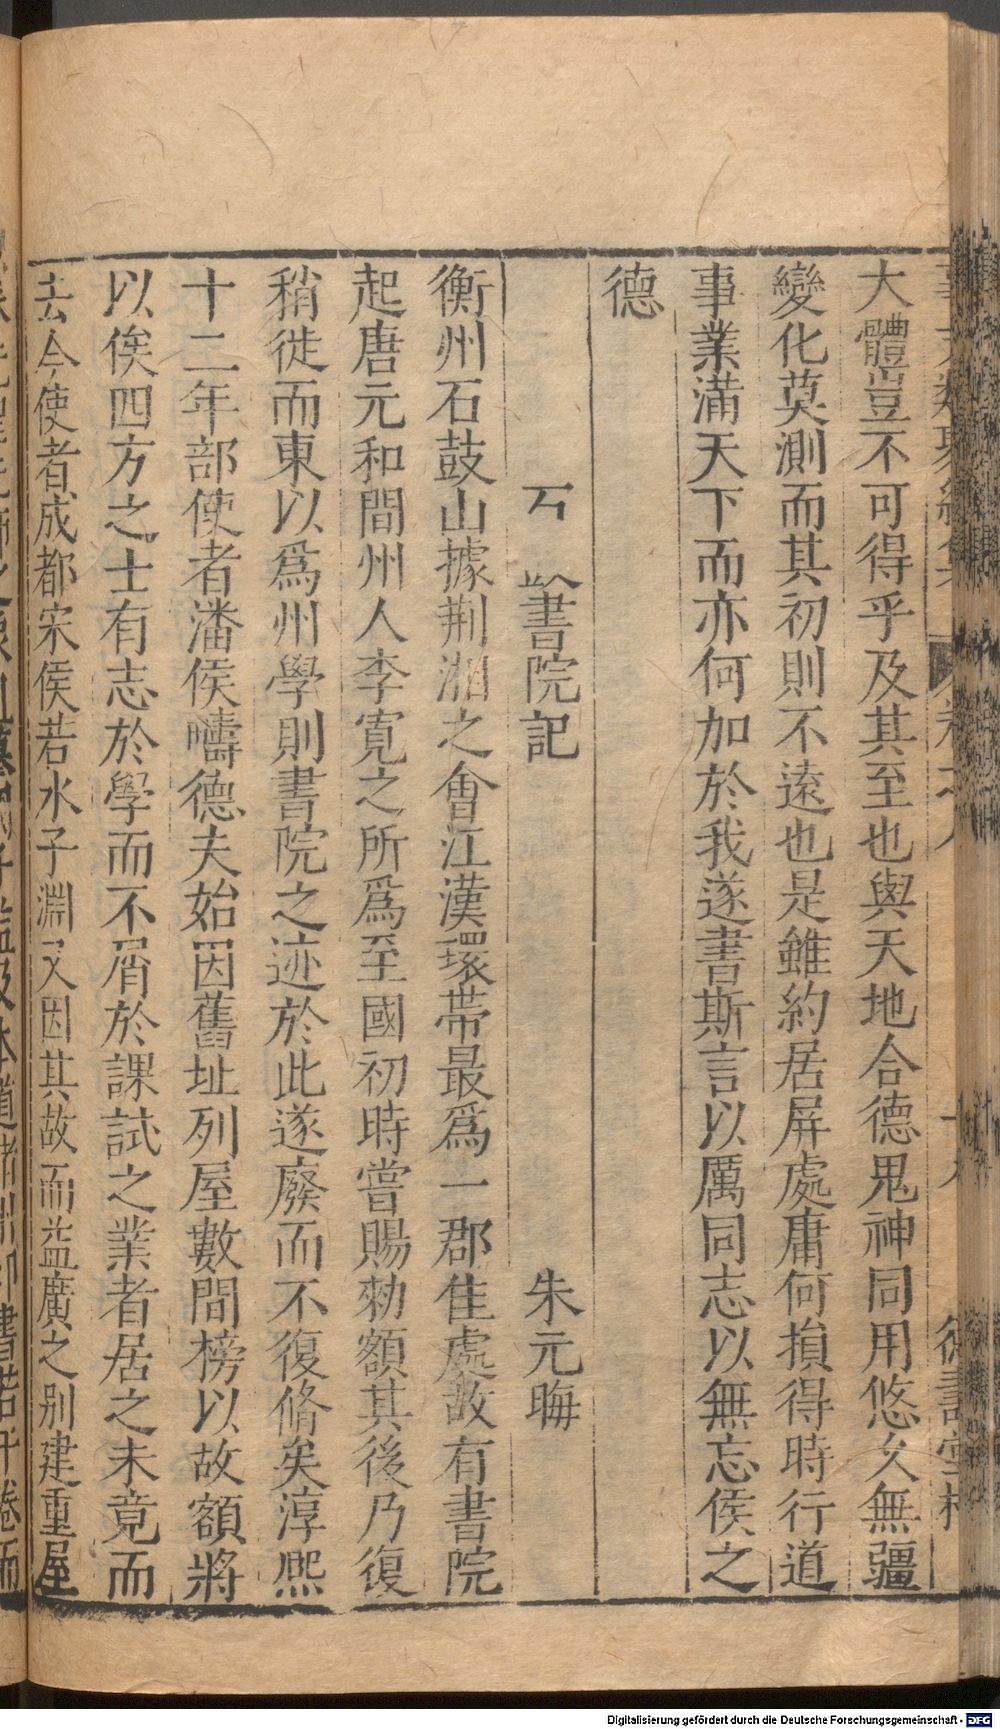 大體豈不可得乎及其至也與天地合德鬼神同用悠久無疆
變化莫測而其初則不遠也是雖約居屏處庸何損得時行道
事業滿天下而亦何加於我遂書斯言以厲同志以無忘侯之
德
書院記 朱元晦
衡州石鼓山據荆湘之會江漢環帶最爲一郡佳處故有書院
起唐元和間州人李寬之所爲至國初時嘗賜勑額其後乃復
稍徙而東以爲州學則書院之迹於此遂廢而不復脩矣淳熙
十二年部使者潘侯疇德夫始因舊址列屋數間榜以故額將
以俟四方之士有志於學而不屑於課試之業者居之未竟而
去今使者成都宋侯若水子淵又因其故而益廣之别建重屋
Digitalisierung gefördert durch die Deutsche Forschungsgemeinschaft - DFG